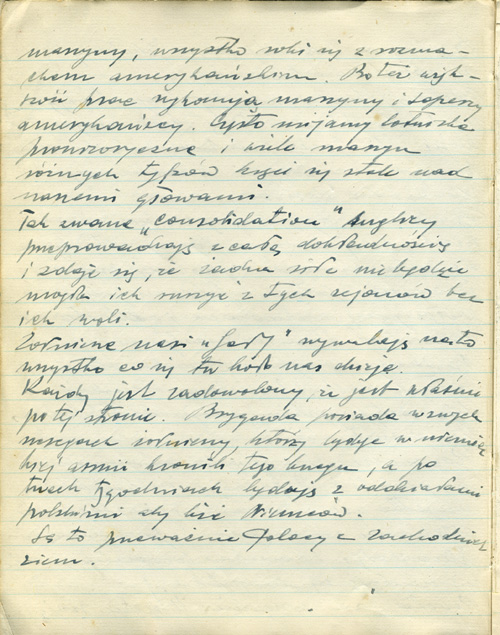 maszyny, wszystko robi się z rozma-
chem amerykańskim. Roboty więk-
szość prac wykonują maszyny i saperzy
amerykańscy. Często mijamy lotniska
prowizoryczne i wiele maszyn
różnych typów kręci się stale nad
naszemi głowami.
Tak zwane "consolidation" Anglicy
przeprowadzają z całą dokładnością
i zdaje się, że żadna siła nie będzie
mogła ich ruszyć z tych rejonów bez
ich woli.
Żołnierze nasi "gały" wywalają na to
wszystko co się tu koło nas dzieje.
Każdy jest zadowolony, że jest właśnie
po tej stronie. Brygada posiada w swych
szeregach żołnierzy, którzy będąc w niemiec-
kiej armii bronili tego brzegu, a po
dwóch tygodniach będąc z oddziałami
polskimi aby bić Niemców.
Są to przeważnie Polacy z zachodnich
ziem.